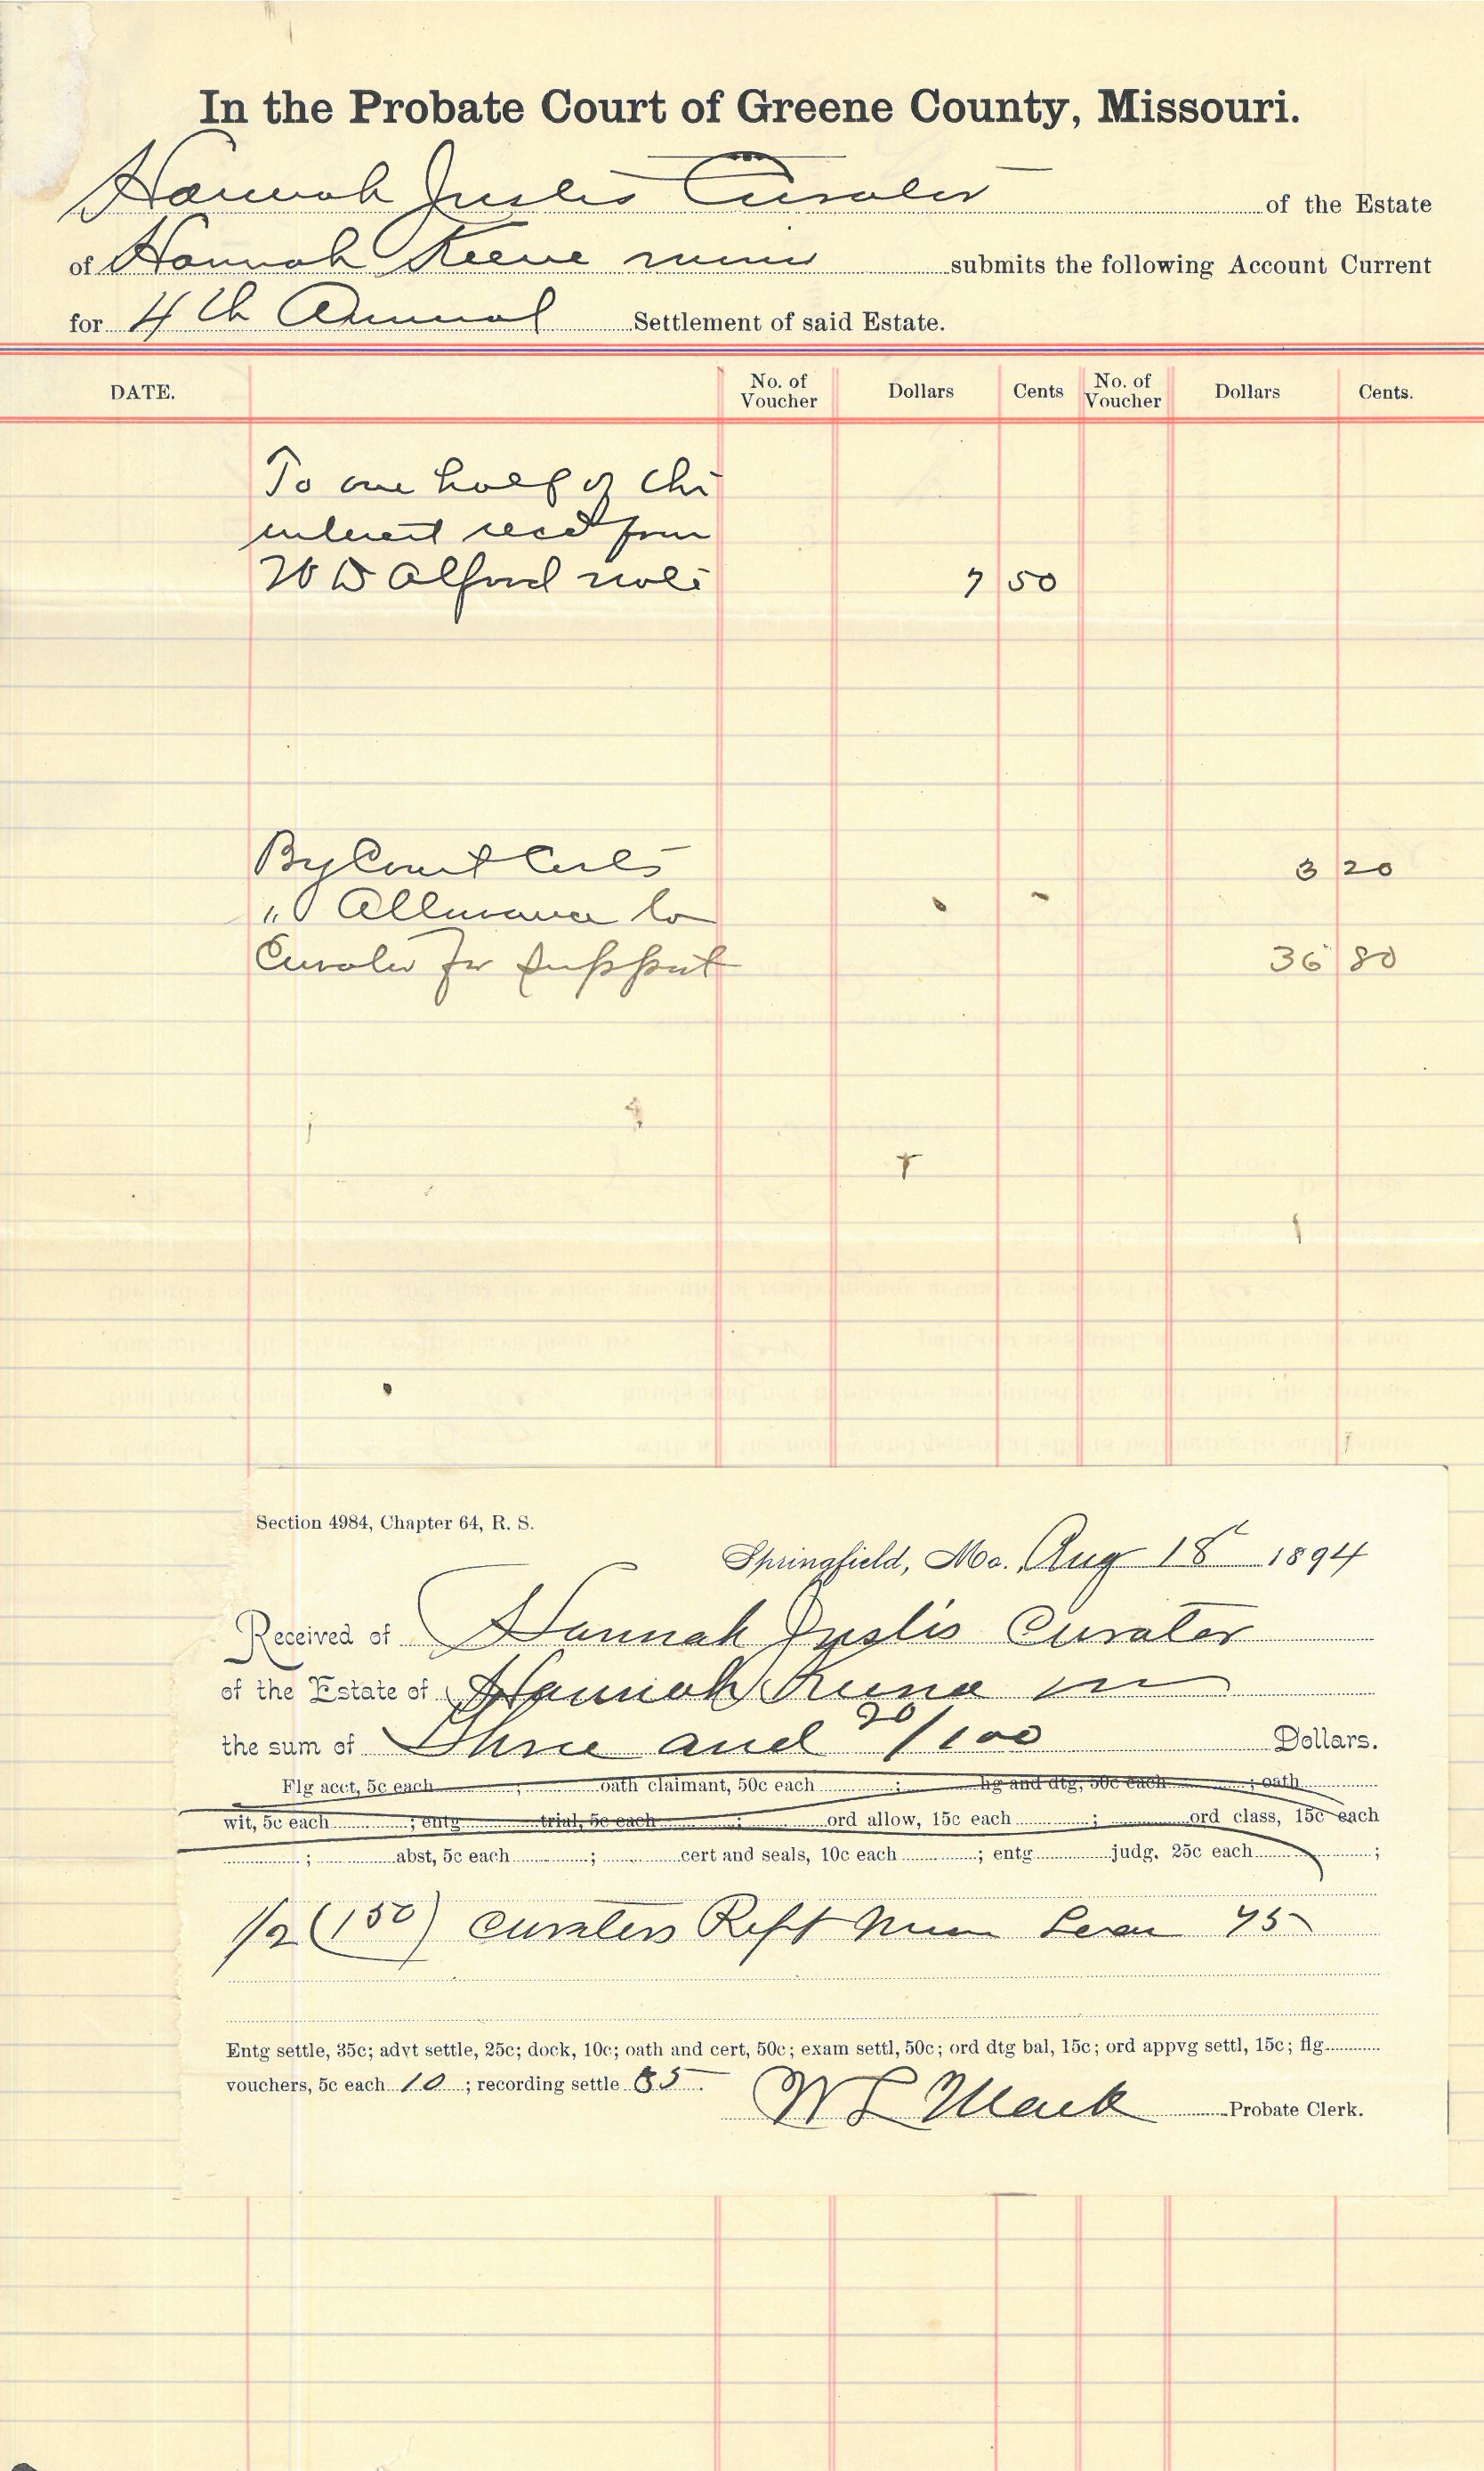 In the Probate Court of Greene County, Missouri.
Hannah Justis Curator of the Estate
of Hannah Keene minor submits the following Account Current
for 4th Annual Settlement of said Estate.
DATE. No. of Voucher Dollars Cents No. of Voucher Dollars Cents.
To one half of the
interest recd from
W D Alford note 7 50
By Court Costs 3 20
" Allowance to
Curator for support 36 80
Section 4984, Chapter 64, R. S.
Springfield, Mo. Aug 18 1894
Received of Hannah Justis Curator
of the Estate of Hannah Keene m
the sum of Three and 20/100 Dollars.
Flg acct, 5c each ; oath claimant, 50c each ; hg and dtg, 50c each ; oath
wit, 5c each ; entg trial, 5c each ; ord allow, 15c each ; ord class, 15c each
; abst, 5c each ; cert and seals, 10c each ; entg judg. 25c each ;
1/2 (150) Curators Rept 75
Entg settle, 35c; advt settle, 25c; dock, 10c; oath and cert, 50c; exam settl, 50c; ord dtg bal, 15c; ord appvg settl, 15c; flg
vouchers, 5c each 10 ; recording settle 85
W L Mack Probate Clerk.